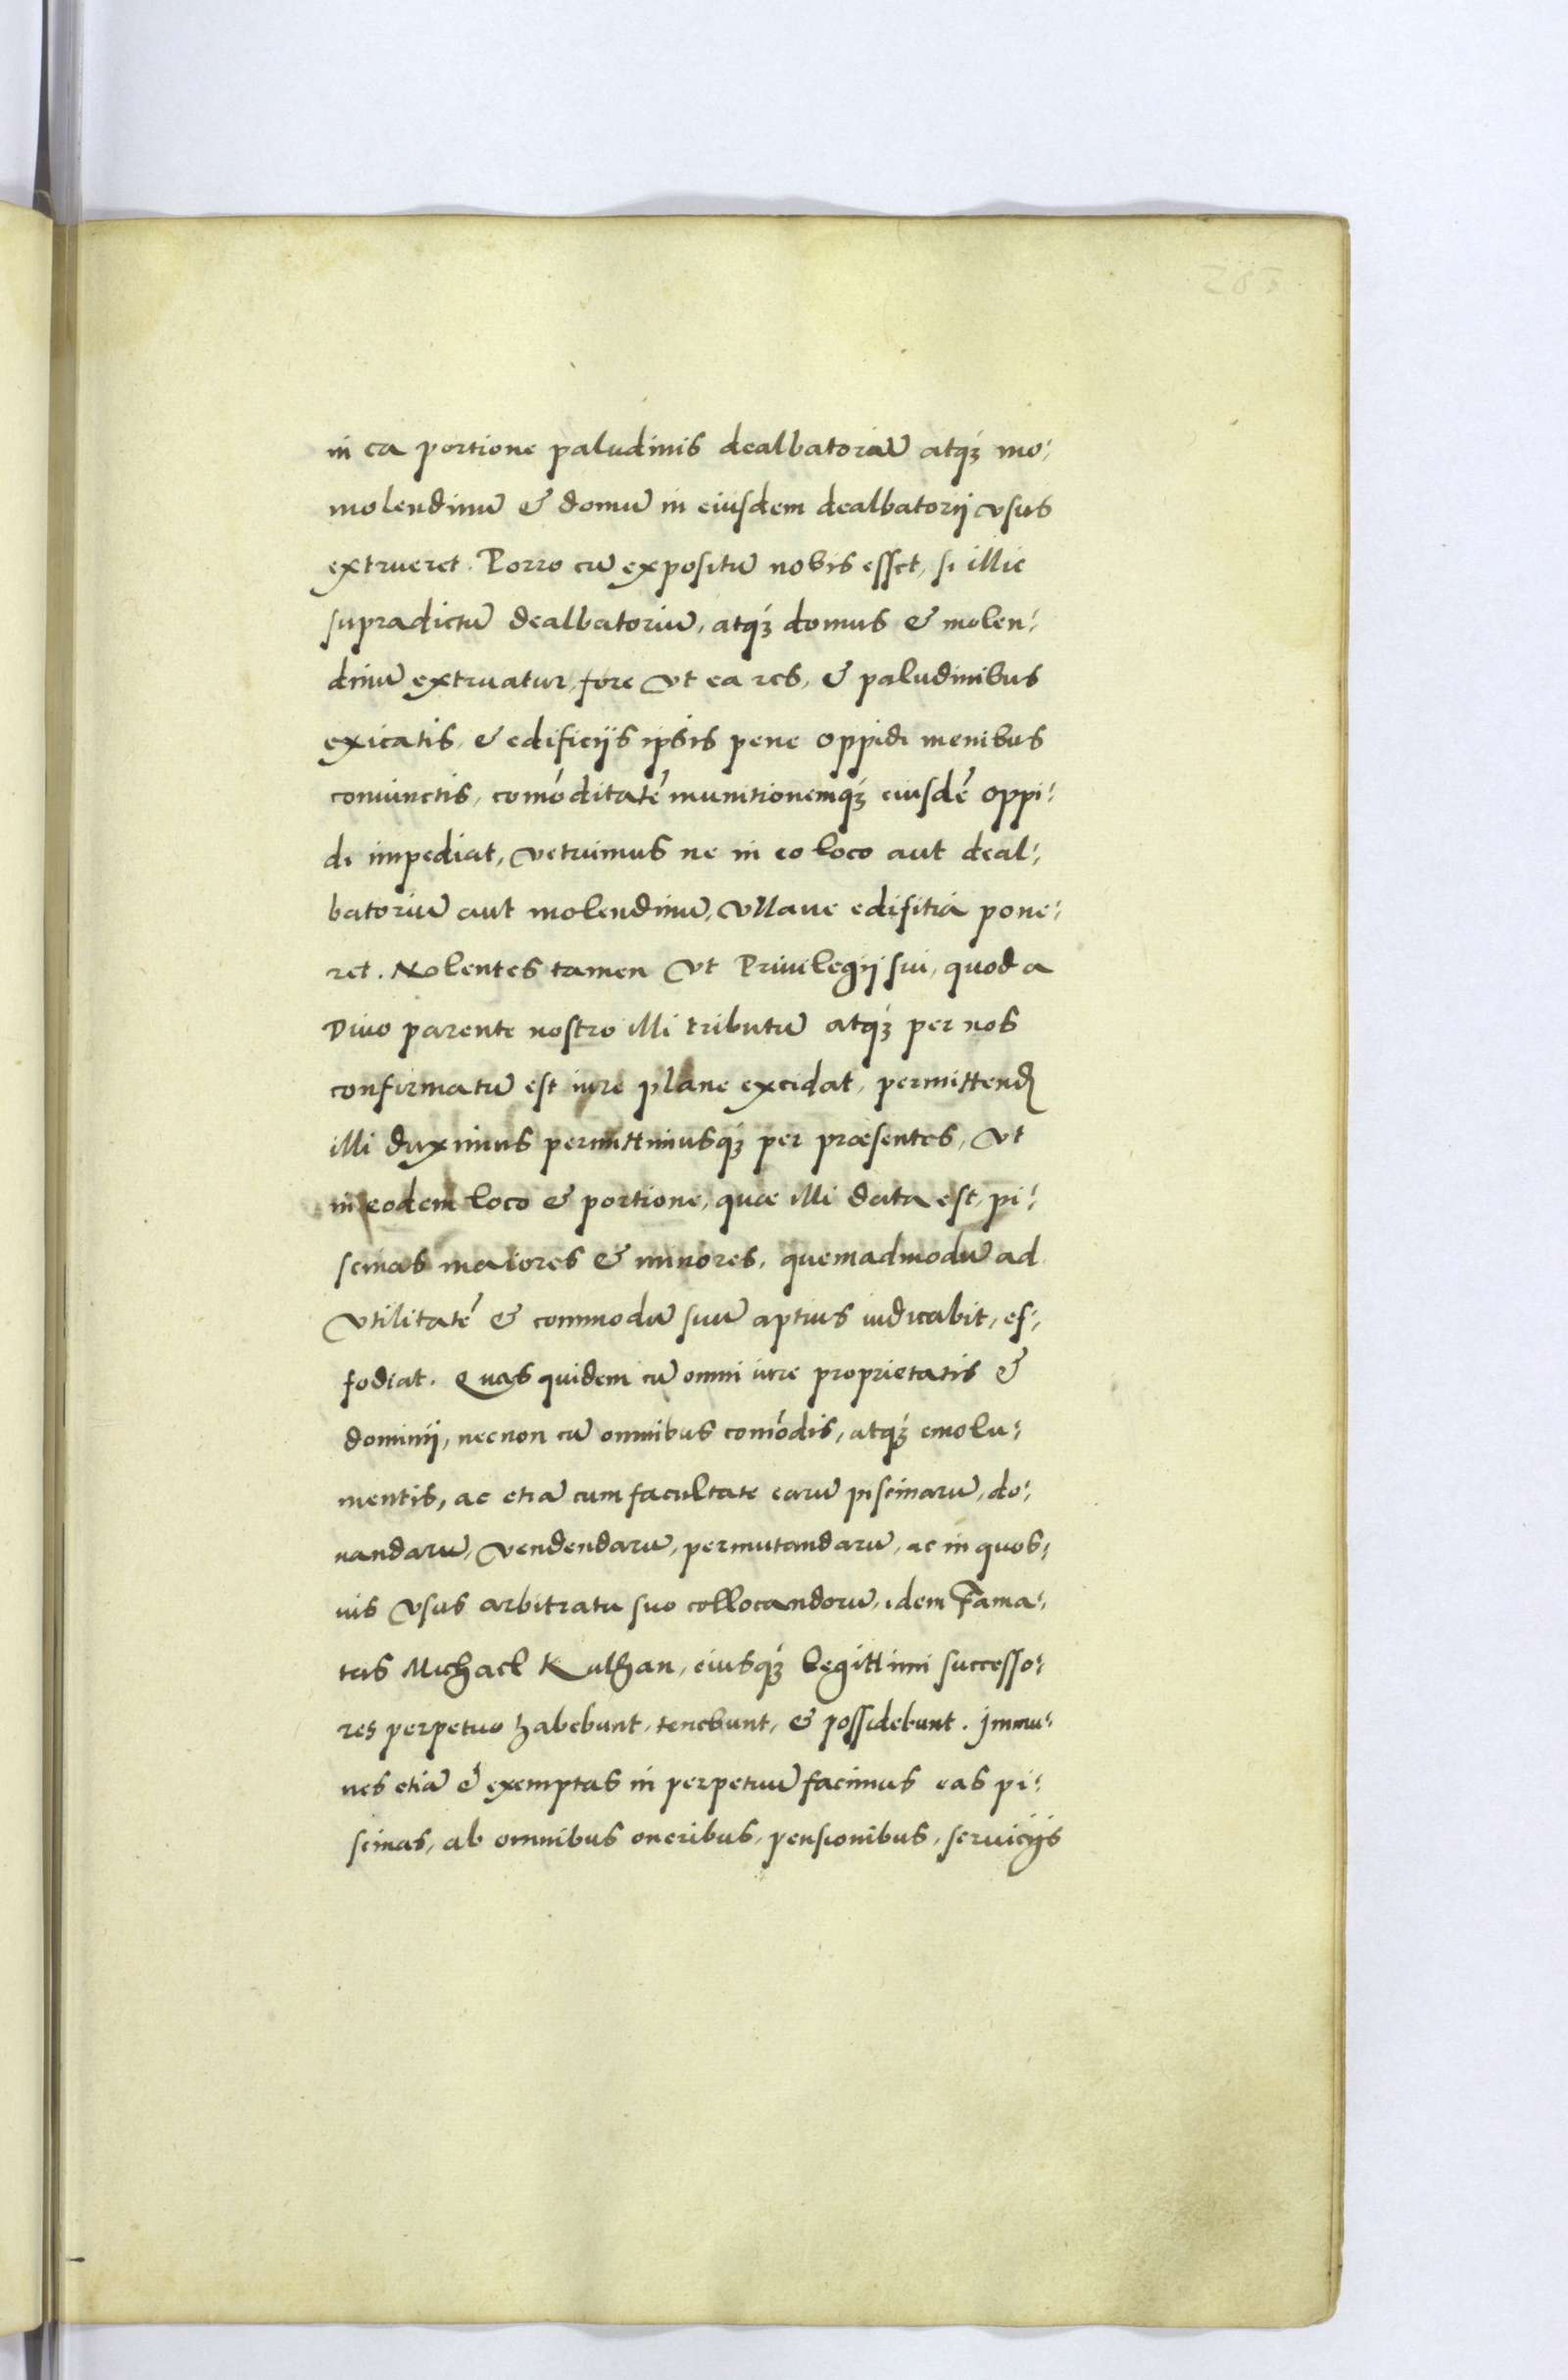 in ea portione paludinis dealbatoriũ atq́ʒ mo⸗
molendinũ & domũ in eiusdem dealbatorij vsus
extrueret. Porro cũ expositũ nobis esset, si illic
supradictũ dealbatoriũ, atq́ʒ domus & molen⸗
dinũ extruatur, fore vt ea res, & paludinibus
exicatis, & edificijs ipsis pene oppidi menibus
coniunctis, com̃oditatẽ munitionemq́ʒ eiusdẽ oppi⸗
di impediat, vetuimus ne in eo loco aut deal⸗
batoriũ aut molendinũ, vllaue edifitia pone⸗
ret. Nolentes tamen vt Priuilegij sui, quod a
Diuo parente nostro illi tributũ atq́ʒ per nos
confirmatũ est iure plane excidat, permittend̃
illi duximus permittimusq́ʒ per præsentes, vt
in eodem loco & portione, quae illi data est, pi⸗
scinas maiores & minores, quemadmodũ ad
vtilitatẽ & commodũ suũ aptius iudicabit, ef⸗
fodiat. Quas quidem cũ omni iure proprietatis &
dominij, necnon cũ omnibus com̃odis, atq́ʒ emolu⸗
mentis, ac etiã cum facultate earũ piscinarũ, do⸗
nandarũ, vendendarũ, permutandarũ, ac in quos⸗
uis vsus arbitratu suo collocandorũ, idem Fama⸗
tus Michael Kulhan, eiusq́ʒ legittimi successo⸗
res perpetuo habebunt, tenebunt, & possidebunt. Immu⸗
nes etiã & exemptas in perpetuũ facimus eas pi⸗
scinas, ab omnibus oneribus, pensionibus, seruicijs